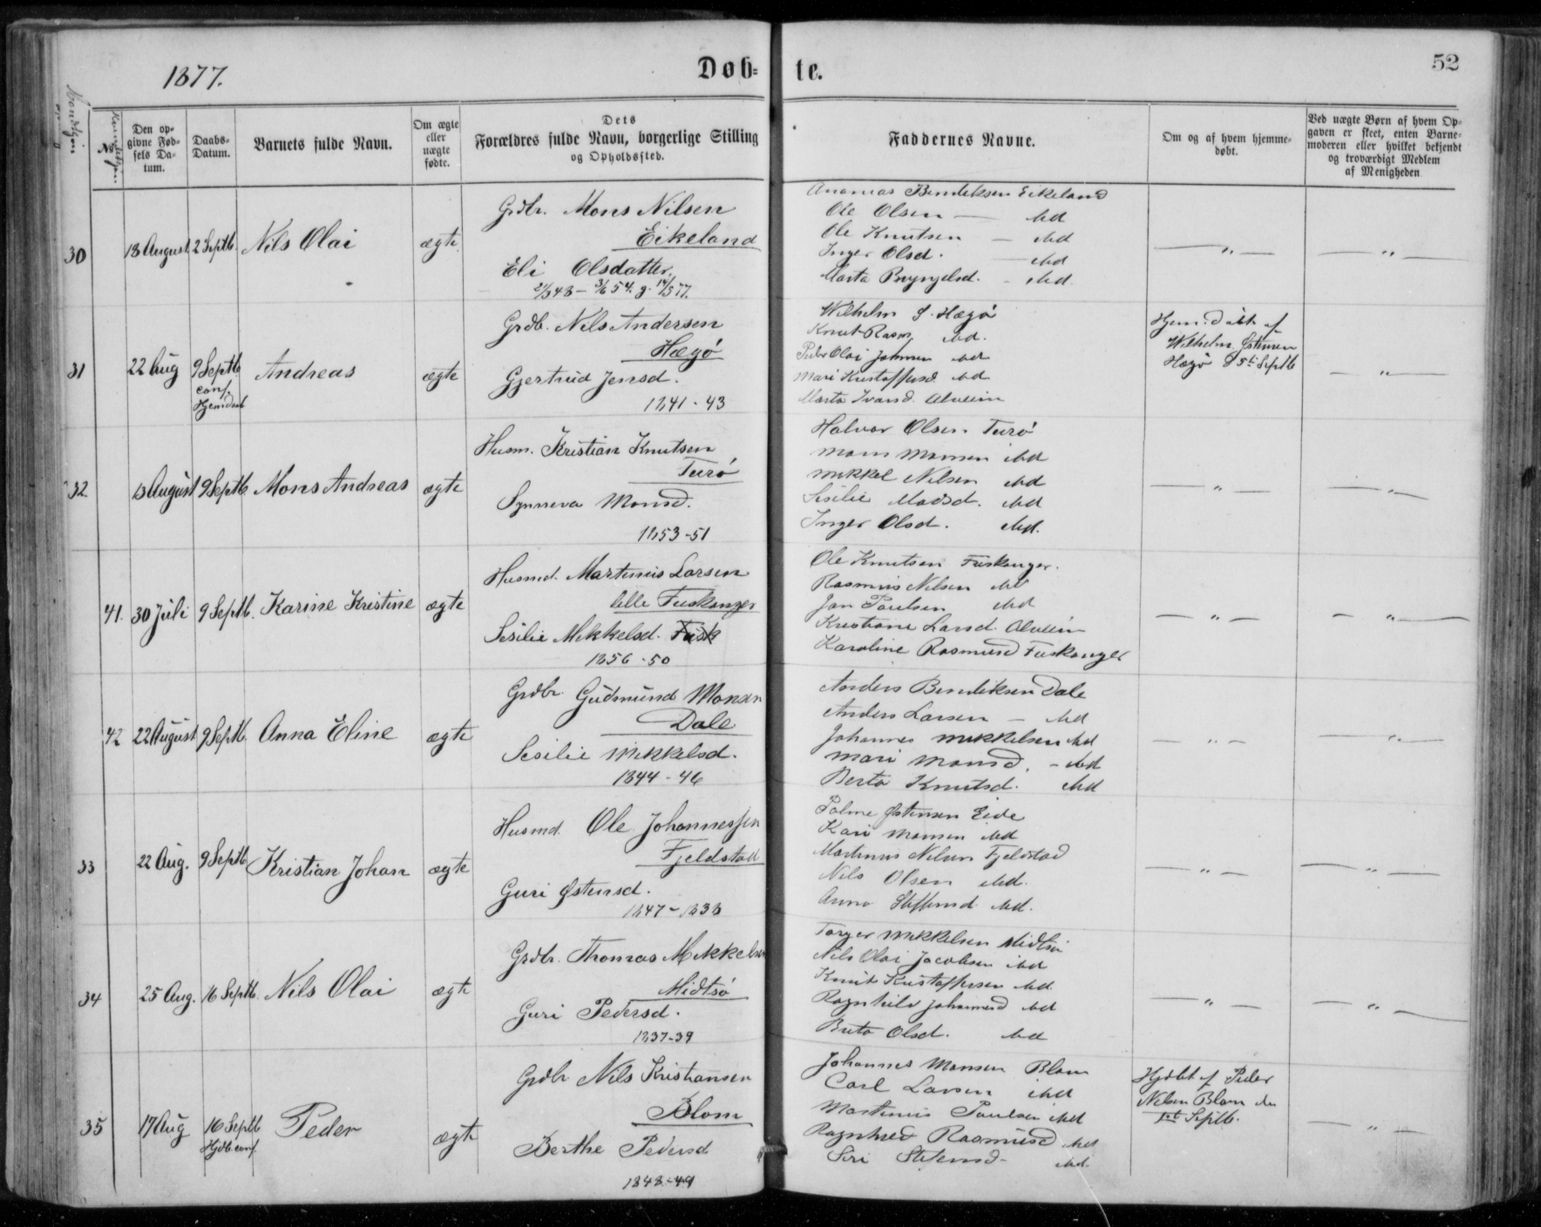 1877.
Døb=
te.
52
Mandkjøn
No.
Kvindekjøn
Den op-
givne Fød-
sels Da-
tum.
Daabs-
Datum.
Barnets fulde Navn.
Om ægte
eller
uægte
fødte.
Dets
Forældres fulde Navn, borgerlige Stilling
og Opholdssted.
Faddernes Navne.
Om og af hvem hjemme-
døbt.
Ved uægte Børn af hvem Op-
gaven er skeet, enten Barne-
moderen eller hvilket bekjendt
og troværdigt Medlem
af Menigheden
30
18 August
2 Septb
Nils Olai
ægte
Grdbr. Mons Nilsen
Eikeland
Eli Olsdatter
Ananias Bendiksen Eikeland
Ole Olsen — ibd
Ole Knutsen — ibd
Inger Olsd. — ibd
Marta Brynjelsd. - ibd.
— „ —
— „ —
31
22 Aug
9 Septb
conf.
Hjemdøbt
Andreas
ægte
Grdb. Nils Andersen
Hægø
Gjertrud Jensd.
1841 - 43
Wilhelm Ø. Hægø
Knut Rasm. ibd.
Peder Olai Johnsen ibd
Mari Kristoffersd. ibd
Marta Ivarsd. Alveim
Hjemdøbt af
Wilhelm Østensen
Hægø d 5te Septb
— „ —
32
13 August
9 Septb
Mons Andreas
ægte
Husm. Kristian Knutsen
Turø
Synneva Monsd.
1853 - 51
Halvor Olsen Turø
Mons Monsen ibd
Mikkel Nilsen ibd
Sesilie Madsd. ibd
Inger Olsd. ibd.
— „ —
— „ —
41.
30 Juli
9 Septb.
Karine Kristine
ægte
Husmd. Martinius Larsen
lille Fuskanger
Sesilie Mikkelsd. Fusk
1856 - 50
Ole Knutsen Fuskanger.
Rasmus Nilsen ibd
Jan Paulsen ibd
Kristiane Larsd. Alveim
Karoline Rasmusd Fuskanger
— „ —
— „ —
42
22 August
9 Septb.
Anna Eline
ægte
Grdbr Gudmund Monsen
Dale
Sesilie Mikkelsd.
1844 - 46
Anders Bendiksen Dale
Anders Larsen — ibd
Johannes Mikkelsen ibd
Mari Monsd. - ibd
Berta Knutsd. ibd
— „ —
— „ —
33
22 Aug.
9 Septb
Kristian Johan
ægte
Husmd. Ole Johannessen
Fjeldstad
Guri Østensd.
1847 - 1838
Palme Østensen Eide
Kari Monsen ibd
Martinus Nilsen Fjeldstad
Nils Olsen ibd.
Anna Steffensd ibd.
— „ —
— „ —
34
25 Aug.
16 Septb.
Nils Olai
ægte
Grdbr. Thomas Mikkelsen
Midtsø
Guri Pedersd.
1837-39
Torger Mikkelsen Midtsø
Nils Olai Jacobsen ibd
Knut Kristoffersen ibd
Ragnhild Johannesd ibd
Brita Olsd. ibd
— „ —
— „ —
35
17 Aug
16 Septb
Hjdb conf.
Peder
ægte
Grdbr Nils Kristiansen
Blom
Berthe Pedersd
1848-49
Johannes Monsen Blom
Carl Larsen ibd
Martinus Paulsen ibd
Ragnhild Rasmusd ibd
Siri Steensd- ibd.
Hjdbt af Peder
Nilsen Blom den
1ste Septb.
— „ —